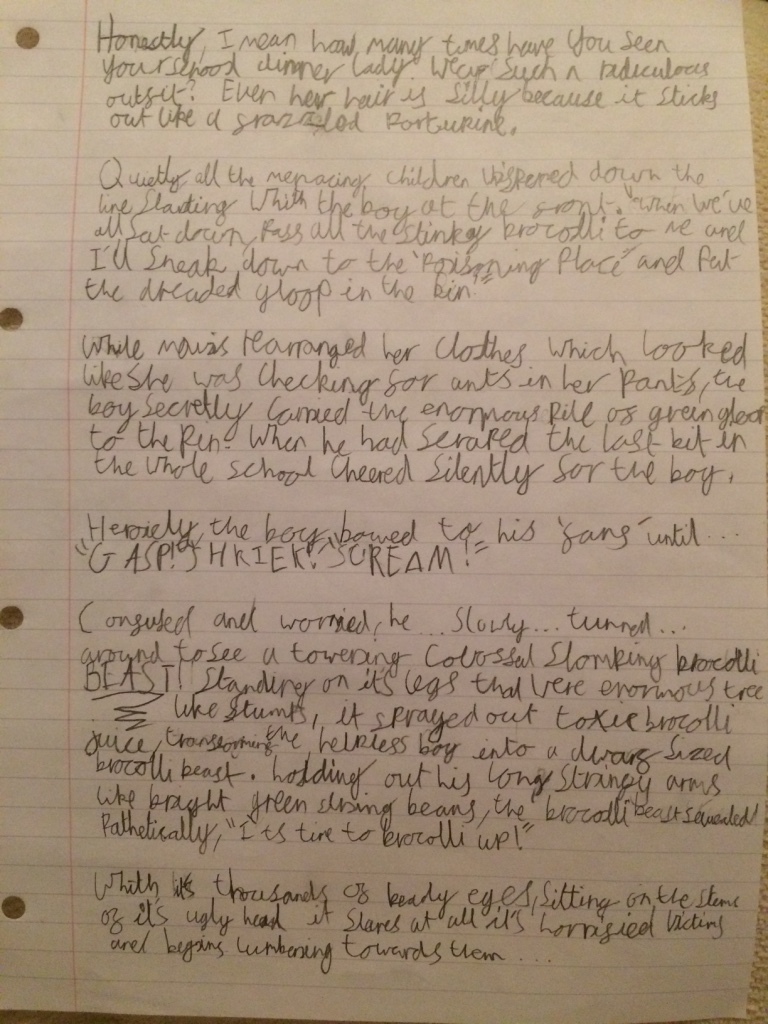 Honestly, I mean how many times have you seen
your school dinner lady wear such a rediculous
outsit? Even her hair is silly because it sticks
out like a frazzled porcupine.
Quietly all the menacing children wispered down the
line starting whith the boy at the front. "When we've
all sat down, pass all the stinky brocolli to me and
I'll sneak down to the "Poisoning Place" and put
the dreaded gloop in the bin."
While rearranged her clothes which looked
like she was checking for ants in her pants, the
boy secretly carried the enormous pile of green gloop
to the When he had scraped the last bit in
the whole school cheered silently for the boy.
the boy bowed to his "fans" until...
"GASP!" SHRIEK! "SCREAM!"
Confused and worried, he... slowly... turned...
around to see a towering colossal brocolli
BEAST! Standing on its legs that were enormous tree
like stumps, it sprayed out toxic brocolli
juice, transforming the helpless boy into a dwarf sized
brocolli beast. holding out his long stringy arms
like bright green string beans, the brocolli beast
Pathetically, "I'ts time to brocolli up!"
Whith it's thousands of beady eyes, sitting on the stems
of it's ugly head it stares at all it's horrified victims
and begins lumbering towards them...